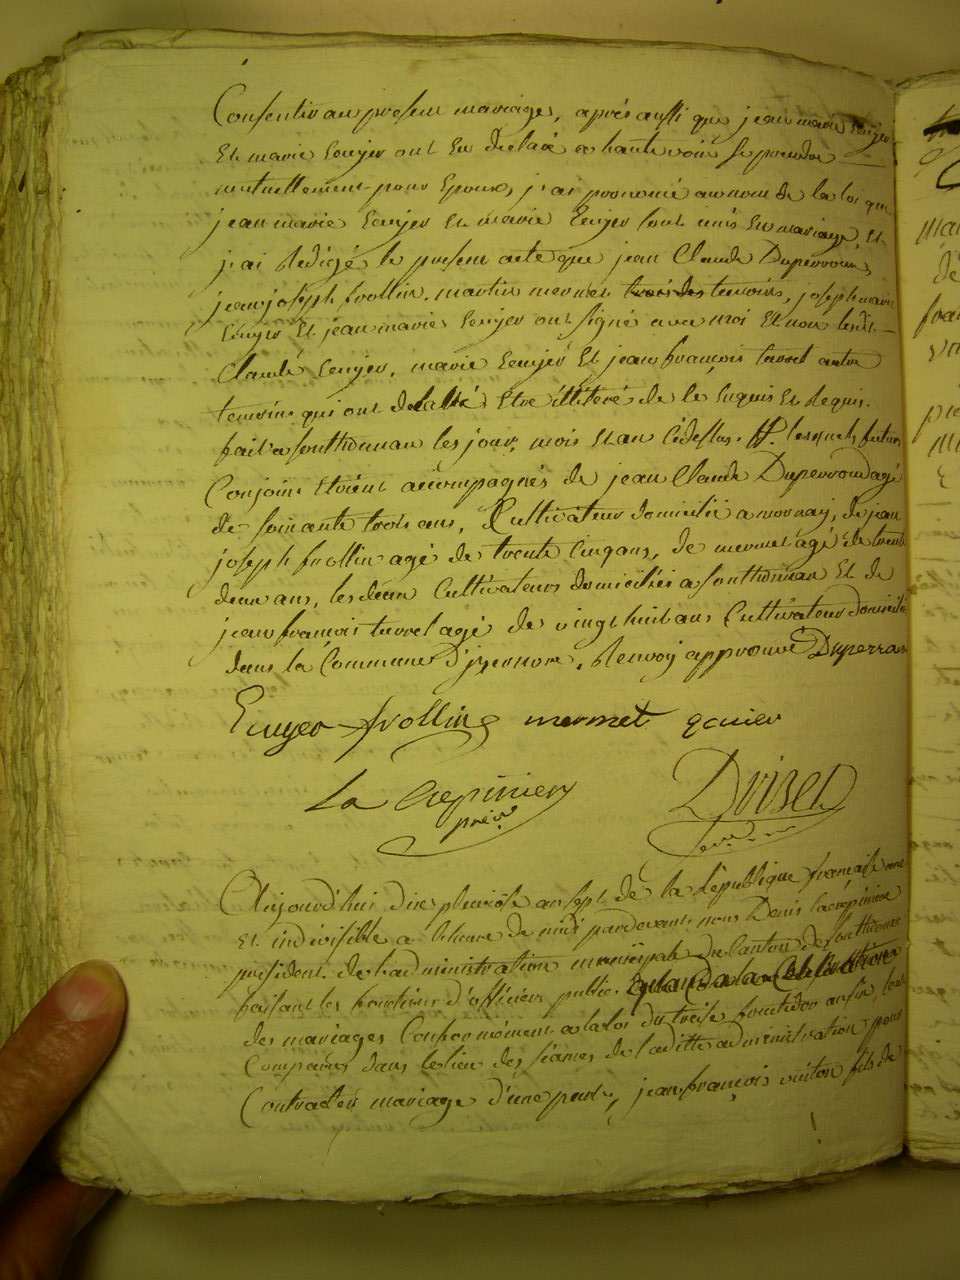 Consentir au present mariage, après aussi que jean marie
Et marie ont Eu declaré a haute voix se prendre
mutuellement pour Epoux, j'ai prononcé au nom de la loi que
jean marie Et marie sont unis En mariage, Et
j'ai Redigé le present acte que jean Claude Duperrour,
jean joseph frollin, martin mermet temoins, joseph marie
Et jean marie ont signé avec moi Et non
Claude marie Et jean françois turrel autre
temoins qui ont declaré Etre illiteré de ce Enquis Et Requis.
fait a sonthonnax les jour, mois Et an Cidessus. lesquels futurs
Conjoins Etoient accompagnés de jean Claude Duperroud agé
de soixante trois ans, Cultivateur domicilié a de jean
joseph frollin agé de trente Cinq ans, de mermet agé de trente
deux ans, les deux Cultivateurs domiciliés a sonthonnax Et de
jean francois turrel agé de vingt huit ans Cultivateur domicilié
dans la Commune d'izernore, Renvoy approuvé Duperrou
frollin mermet
La Crepinier
présid
Droisen
Aujourd'hui dix pluviose an sept de la République française une
Et indivisible a l'heure de midi pardevant nous Denis Lacrépinière
president de l'administration municipale du Canton de sonthonnax
faisant les fonctions d'officier public
des mariages Conformément a la loi du treize fructidor an six, sont
Comparus dans le lieu des séances de laditte administration pour
Contracter mariage d'une part, jean françois fils de